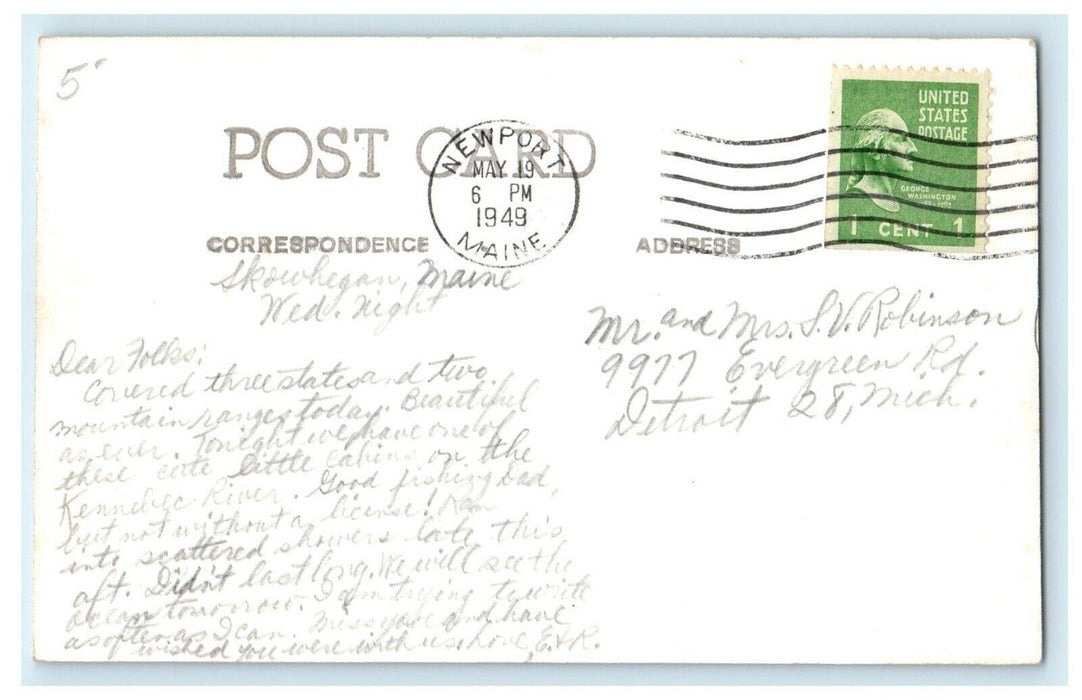 5
UNITED
STATES
POSTAGE
GEORGE
WASHINGTON
1 CENT 1
POST CARD
NEWPORT
MAY 19
6 PM
1949
MAINE
CORRESPONDENCE
ADDRESS
Skowhegan, Maine
Wed. Night
Dear Folks:
Covered three states and two
mountain ranges today. Beautiful
as ever. Tonight we have one of
these cute little cabins on the
Kennebec River. Good fishing Dad,
but not without a license! Ran
into scattered showers late this
aft. Didn't last long. We will see the
ocean tomorrow. I am trying to write
as often as I can. Miss you and have
wished you were with us. Love, E. & R.
Mr. and Mrs. S. V. Robinson
9977 Evergreen Rd.
Detroit 28, Mich.